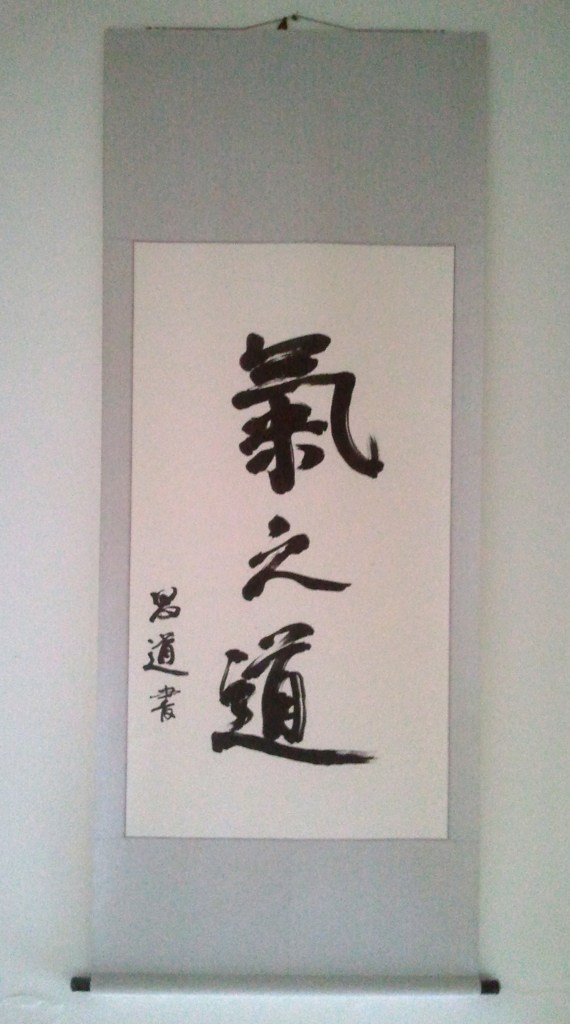 氣之道
思道書